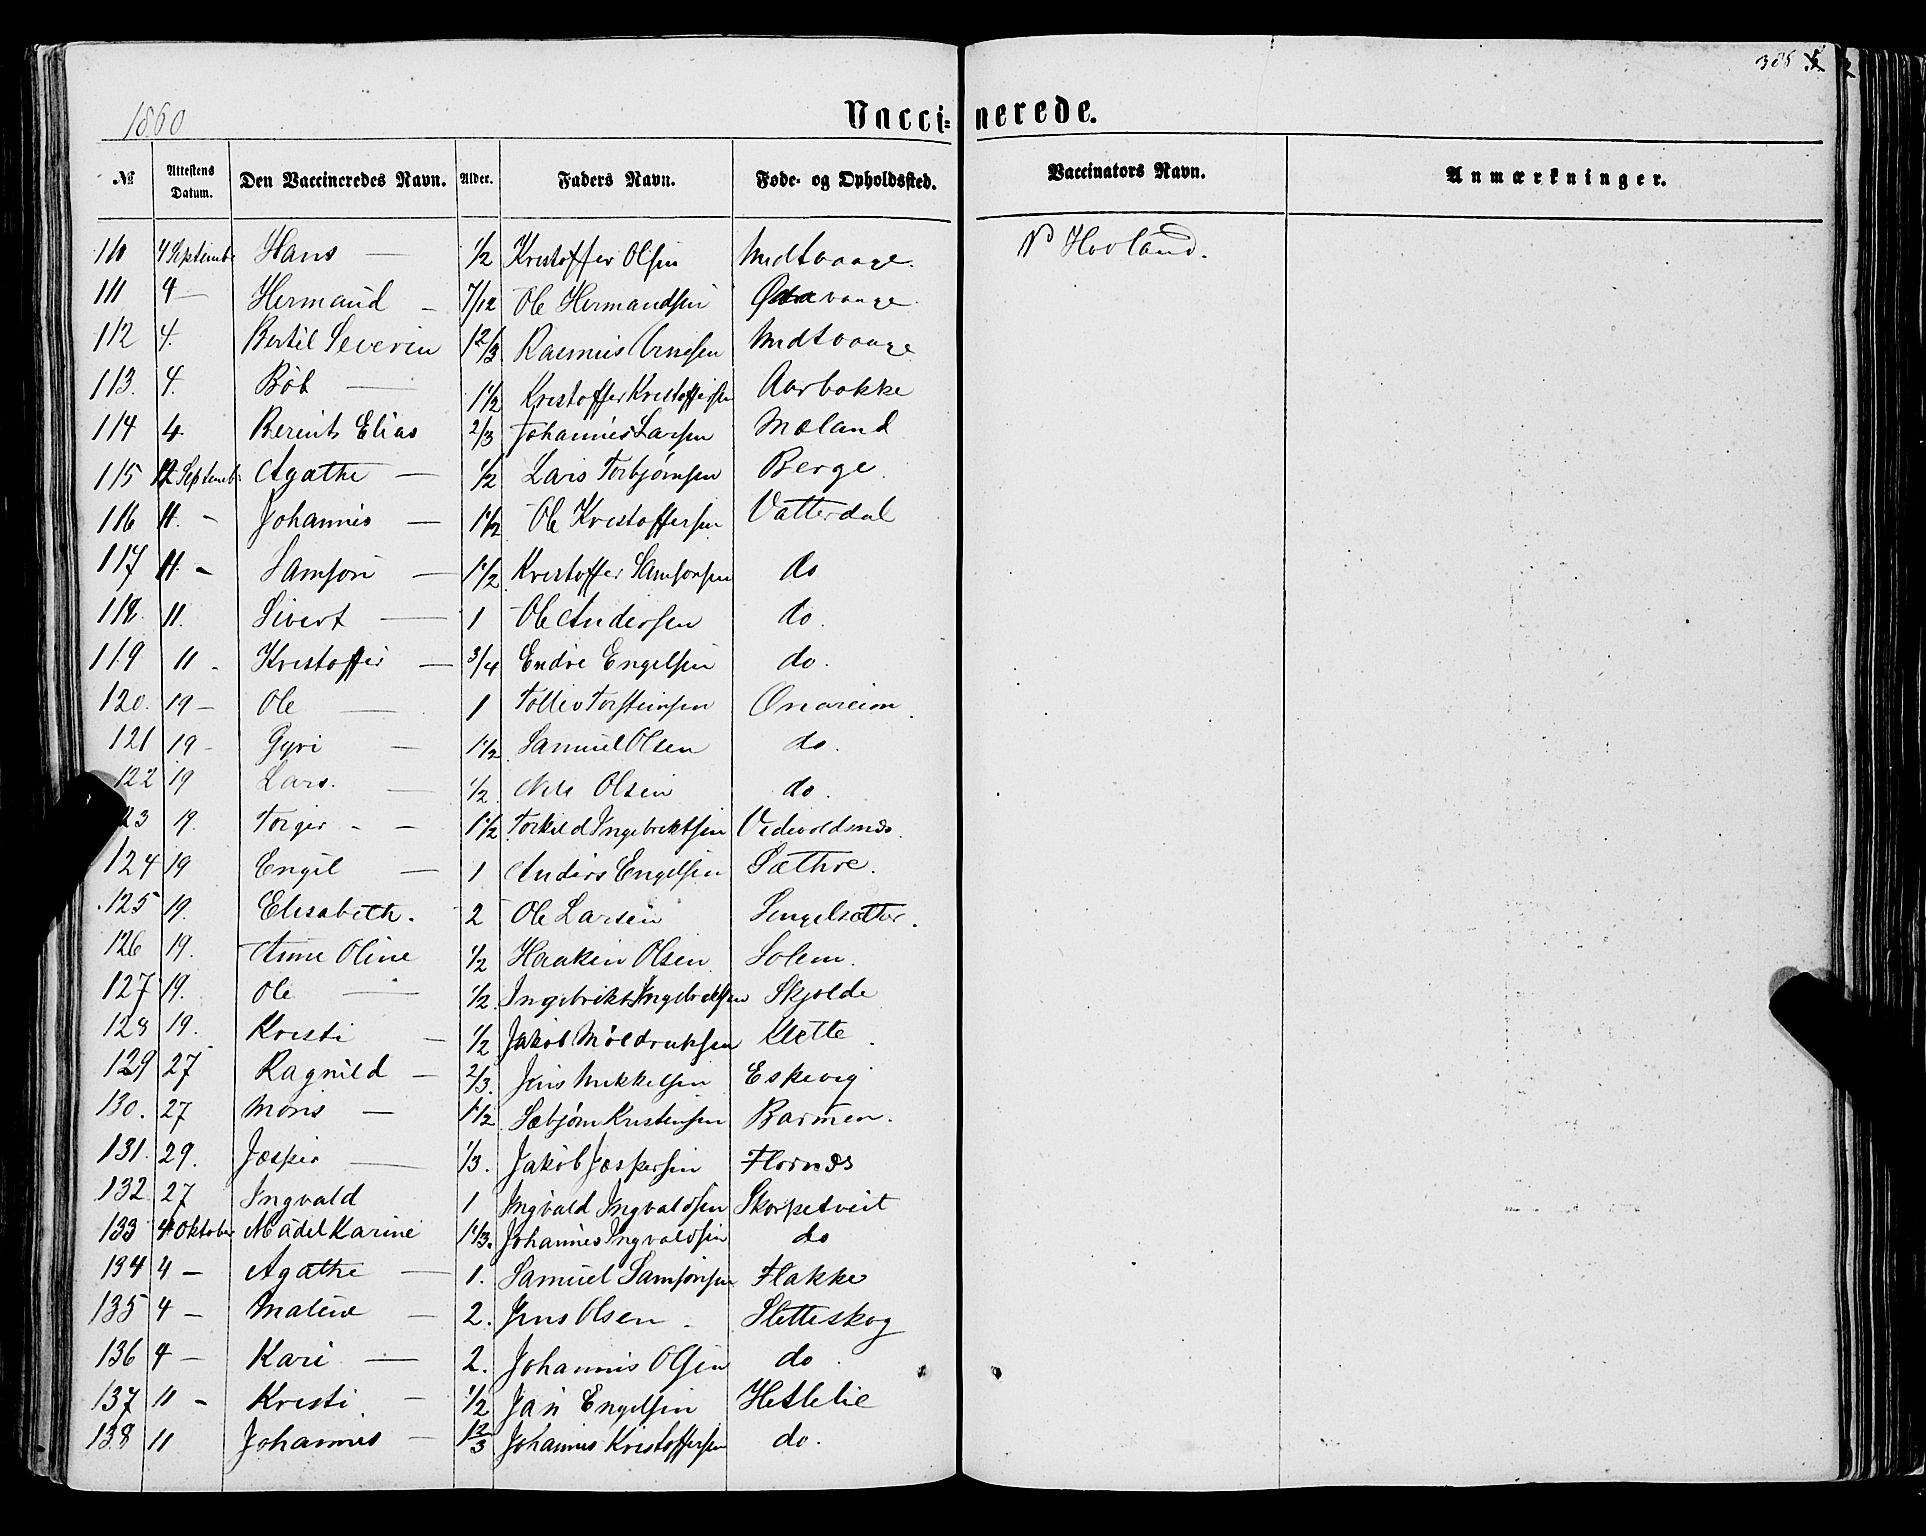 385
1860
Vaccinerede.
№ Attestens Datum. Den Vaccineredes Navn. Alder. Faders Navn. Føde- og Opholdssted. Vaccinators Navn. Anmærkninger.
110 4 Septembr Hans — 1/2 Kristoffer Olsen Midtvaage. N Hovland.
111 4 — Hermand — 7/12 Ole Hermandsen
112 4. Bertil Severin 1 2/3 Rasmus Midtvaage
113. 4. Bøt — 1 1/2 Kristoffer Kristoffersen Aarbakke
114 4. Berint Elias 2/3 Johannes Larsen Mæland
115 12 Septembr Agathe — 1/2 Lars Torbjørnsen Berge.
116 11. - Johannes — 1 1/2 Ole Kristoffersen Vatterdal
117 11. - Samson — 1 1/2 Kristoffer Samsonsen do
118. 11. Sivert — 1 Ole Andersen do.
119 11 - Kristoffer — 3/4 Endre Engelsen do.
120. 19 — Ole — 1 Tollev Torsteinsen Onareim
121 19 - Gyri — 1 1/2 Samuel Olsen do.
122 19 Lars. — 1/2 Nils Olsen do.
23 19. Torger - — 1 1/2 Torkild Ingebriktsen
124 19 Engel — 1 Anders Engelsen Sæthre.
125 19. Elisabeth. - 2 Ole Larsen Singelsætter.
126 19. Anne Oline 1/2 Haaken Olsen Solem.
127 19. Ole — 1/2 Ingebrikt Ingebriktsen Skjolde
128 19. Kristi — 1/2 Jakob Klette.
129 27 Ragnild — 2/3. Jens Mikkelsen Eskevig
130. 27 Mons — 1 1/2 Sæbjørn Kristensen Barmen.
131. 29. Jesper — 1/3. Jakob Jespersen Flornes
132 27 Ingvald 1 Ingvald Ingvaldsen Skorpetveit
133 4 Oktober Madel Karine 1 1/3. Johannes Ingvaldsen do
134 4 — Agathe — 1. Samuel Samsonsen Flakke
135 4 — Maline — 2. Jens Olsen - Sletteskog
136 4 — Kari — 2. Johannes Olsen do.
137 11 - Kristi — 1/2 Jan Engelsen Hetlelie
138 11 Johannes — 1 2/3 Johannes Kristoffersen do.